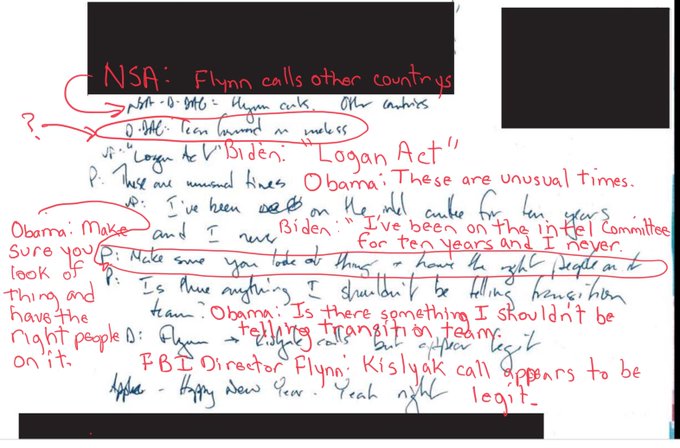 NSA: Flynn calls other countrys
NSA-D-DAG = Flynn cuts. Other countries
?
D-DAG: lean forward on unclass
VP: "Logan Act" Biden: "Logan Act"
P: These are unusual times Obama: These are unusual times.
VP: I've been on the intel cmttee for ten years
and I never Biden: "I've been on the intel Committee
for ten years and I never.
Obama: Make
sure you
look of
thing and
have the
right people
on it.
P: Make sure you look at things + have the right people on it
P: Is there anything I shouldn't be telling transition
team? Obama: Is there something I shouldn't be
telling transition team.
D: Flynn → Kislyak calls but appear legit
FBI Director Flynn: Kislyak call appears to be
legit.
Happy New Year. Yeah right